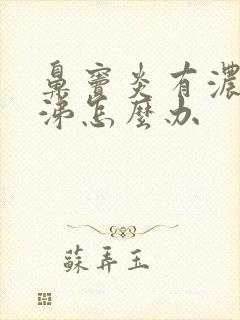 鼻竇炎有濃
涕怎麼办
蘇弄玉